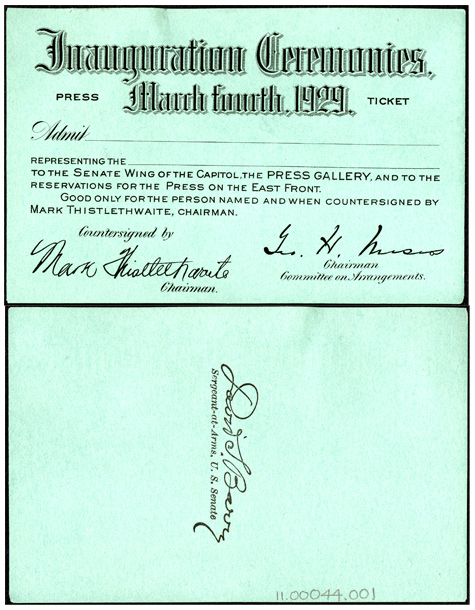 Inauguration Ceremonies,
March fourth, 1929.
PRESS TICKET
Admit
REPRESENTING THE
TO THE SENATE WING OF THE CAPITOL, THE PRESS GALLERY, AND TO THE
RESERVATIONS FOR THE PRESS ON THE EAST FRONT.
GOOD ONLY FOR THE PERSON NAMED AND WHEN COUNTERSIGNED BY
MARK THISTLETHWAITE, CHAIRMAN.
Countersigned by
Mark Thistlethwaite
Chairman.
Geo. H. Moses
Chairman
Committee on Arrangements.
David S. Barry
Sergeant-at-Arms, U. S. Senate
11.00044.001